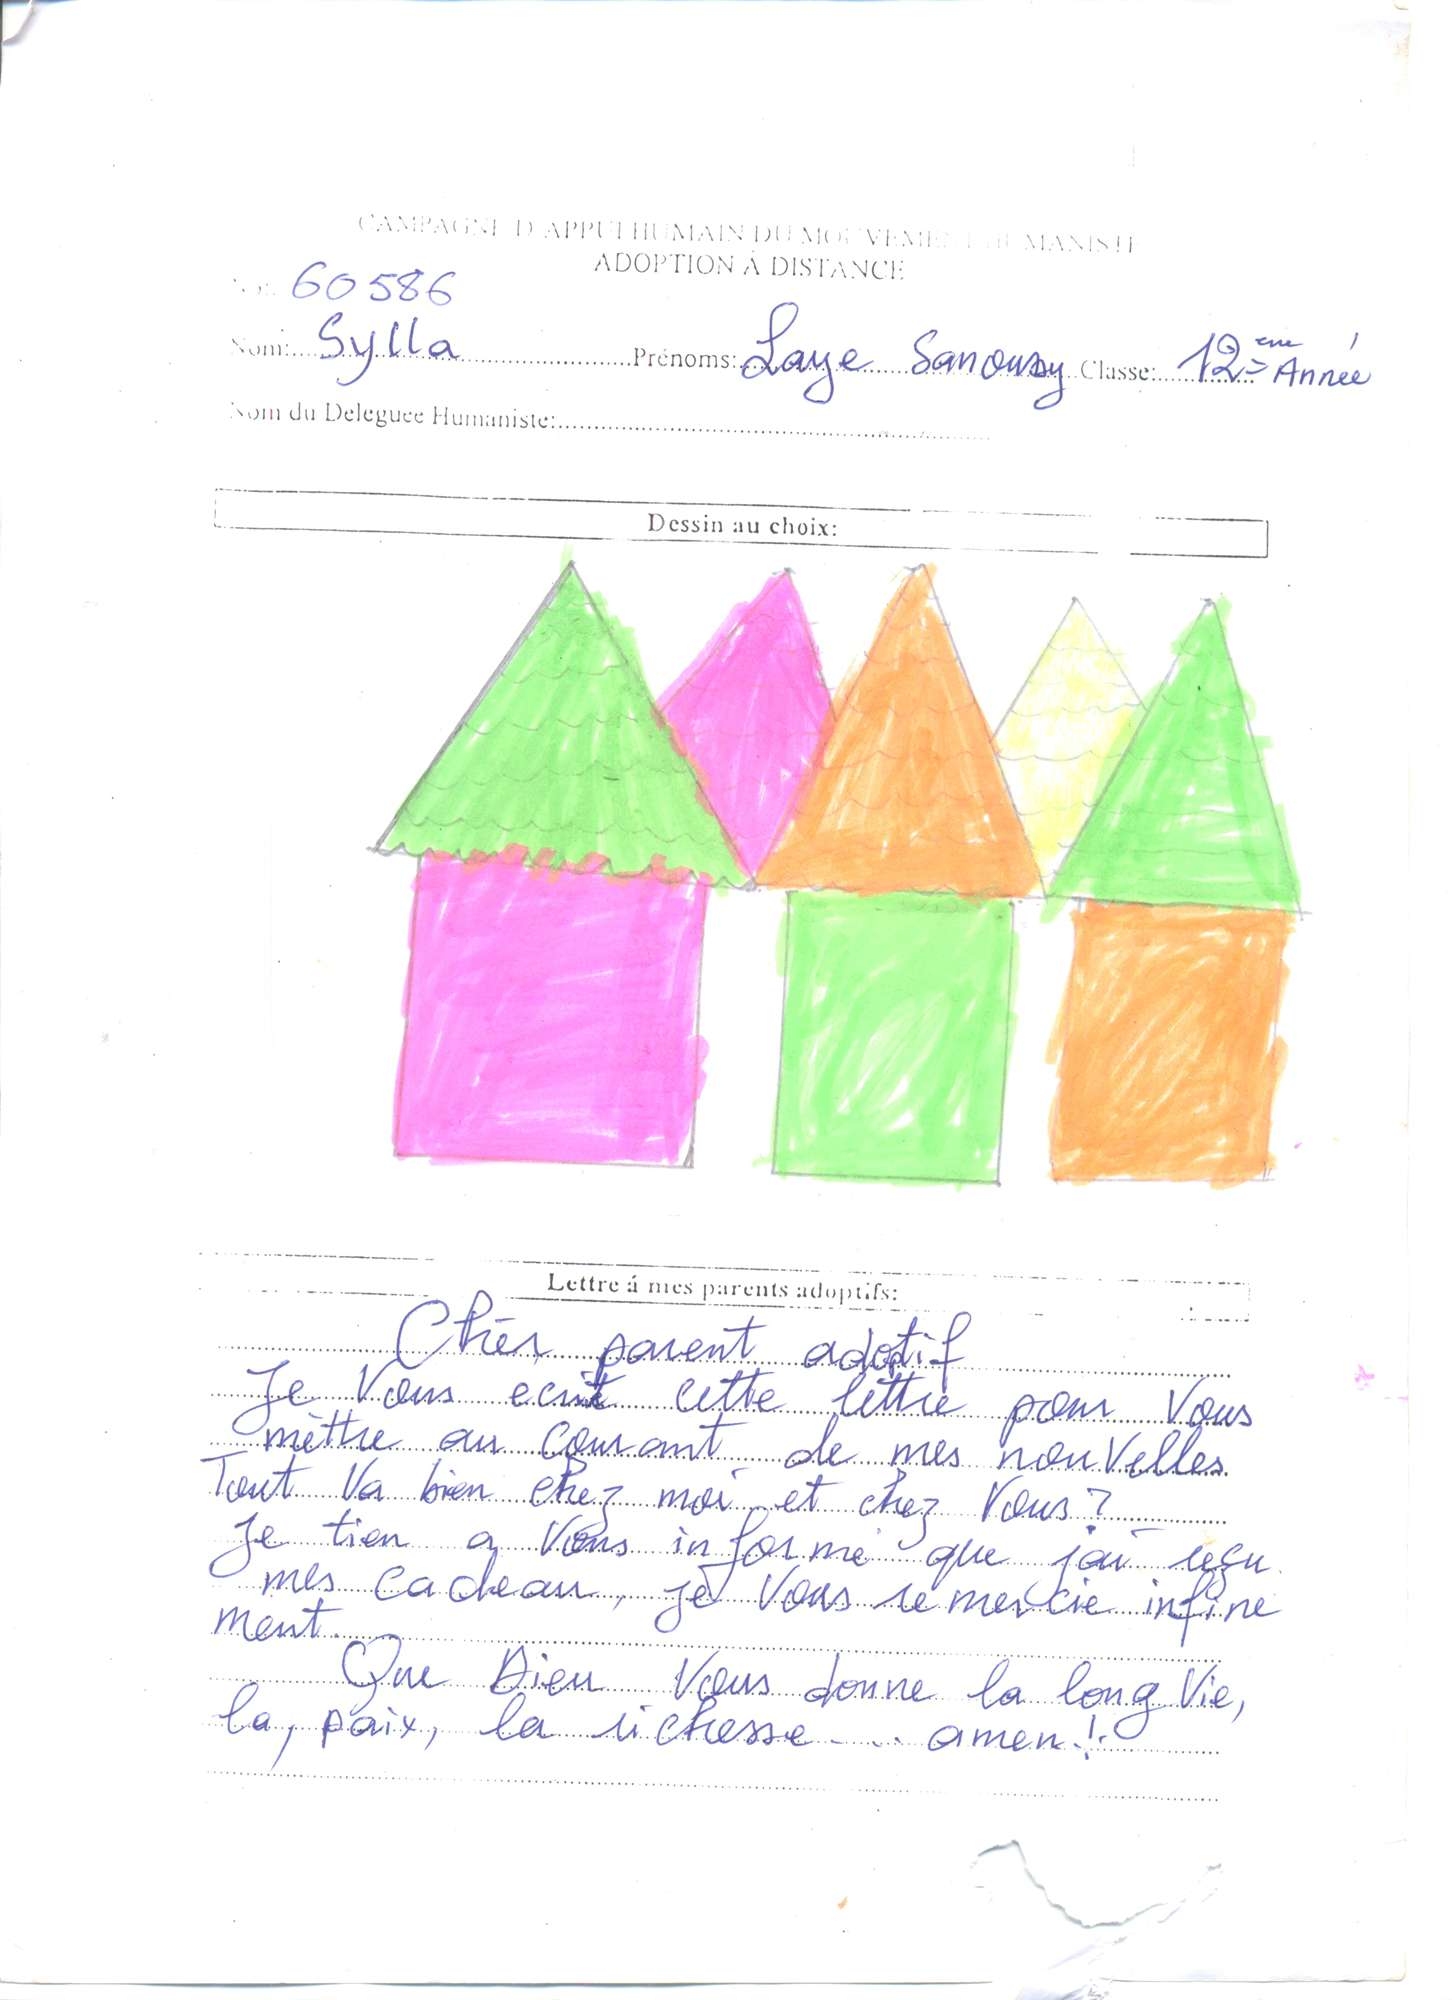 CAMPAGNE D'APPUI HUMAIN DU MOUVEMENT HUMANISTE
ADOPTION Á DISTANCE
60586
Nom: Sylla Prénoms: Laye Sanoussy Classe: 12ème Année
Nom du Deleguee Humaniste:
Dessin au choix:
Lettre á mes parents adoptifs:
Chèr parent adoptif
Je Vous ecrit cette lettre pour Vous
mèttre au courant de mes nouvelles
Tout Va bien chez moi et chez Vous?
Je tien a Vous informé que j'ai reçu
mes cadeau, je Vous remercie infine
ment.
Que Dieu Vous donne la long Vie,
la, paix, la richesse... amen!